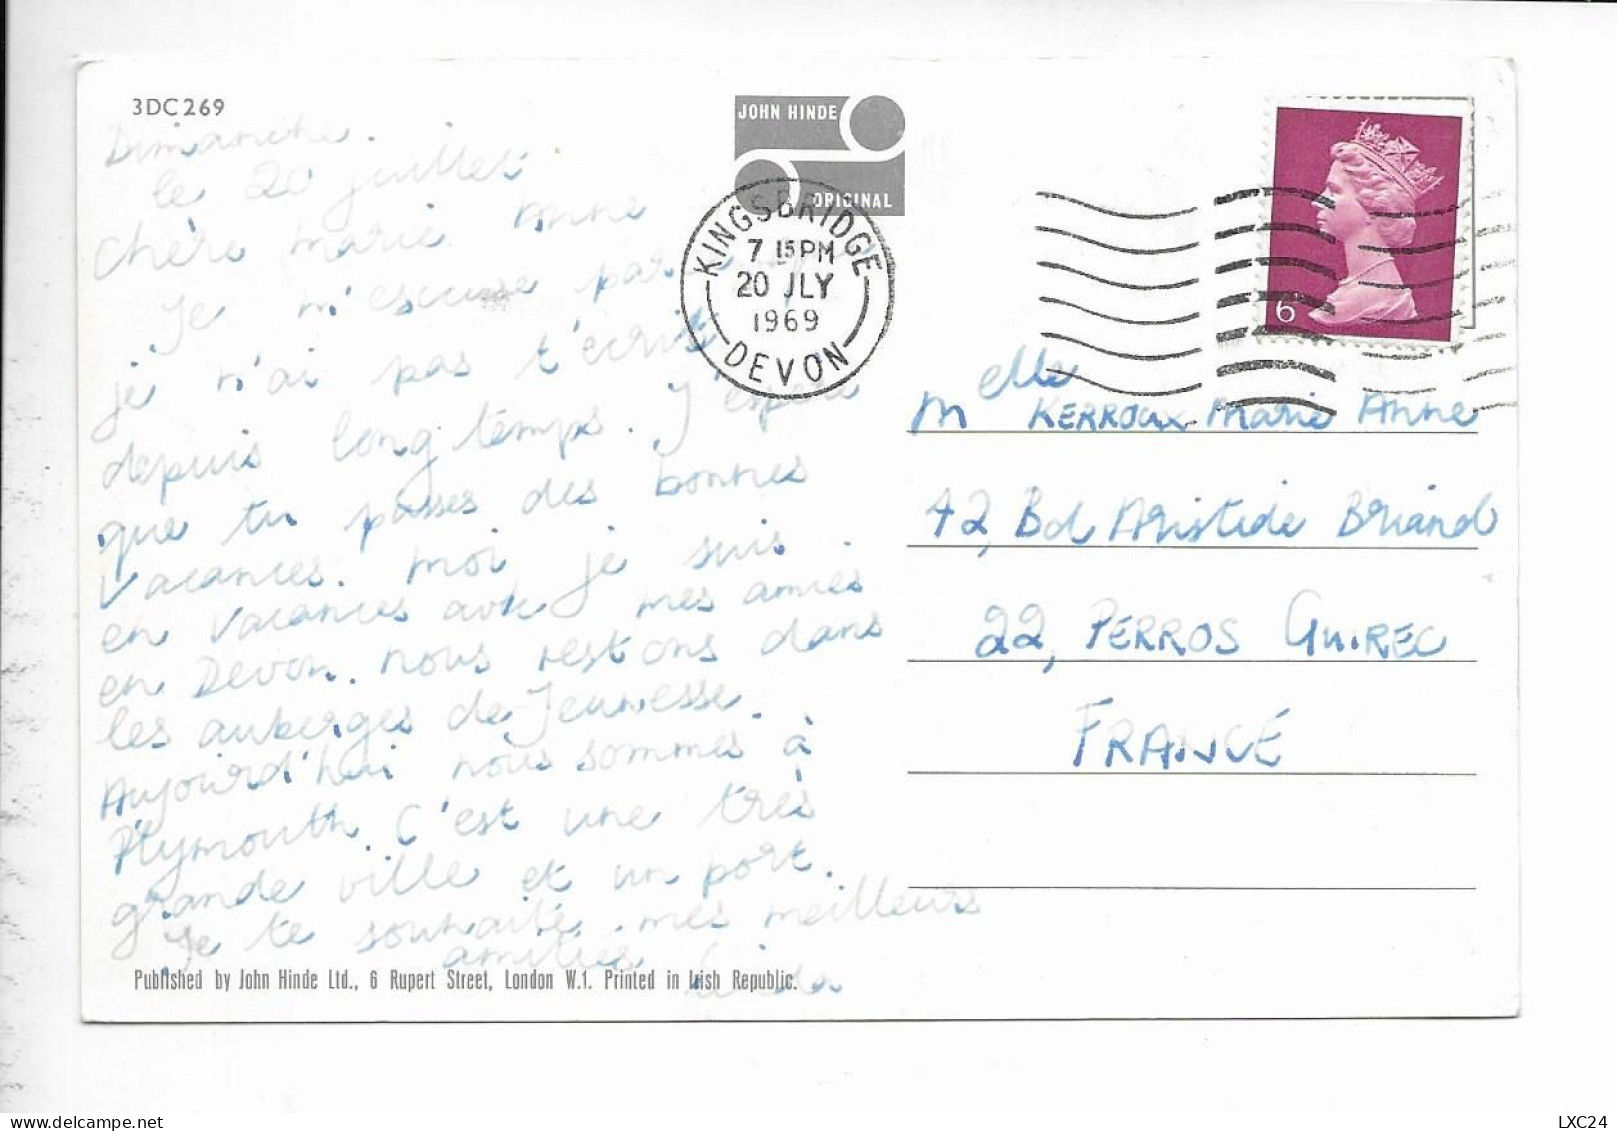 3DC269
Dimanche.
le 20 juillet
Chère Marie Anne
Je m'escuse par
je n'ai pas t'écrit
depuis long temps. J'espère
que tu passes des bonnes
vacances. Moi je suis
en vacances avec mes amies
en Devon. nous restons dans
les auberges de Jeunesse.
Aujourd'hui nous sommes à
Plymouth C'est une très
grande ville et un port.
Je te souhaite mes meilleurs
amities
Linda
Published by John Hinde Ltd., 6 Rupert Street, London W.1. Printed in Irish Republic.
JOHN HINDE
ORIGINAL
KINGSBRIDGE
7 15 PM
20 JLY
1969
DEVON
6
Melle KERROUX Marie Anne
42, Bd Aristide Briand
22, PERROS GUIREC
FRANCE
LXC24